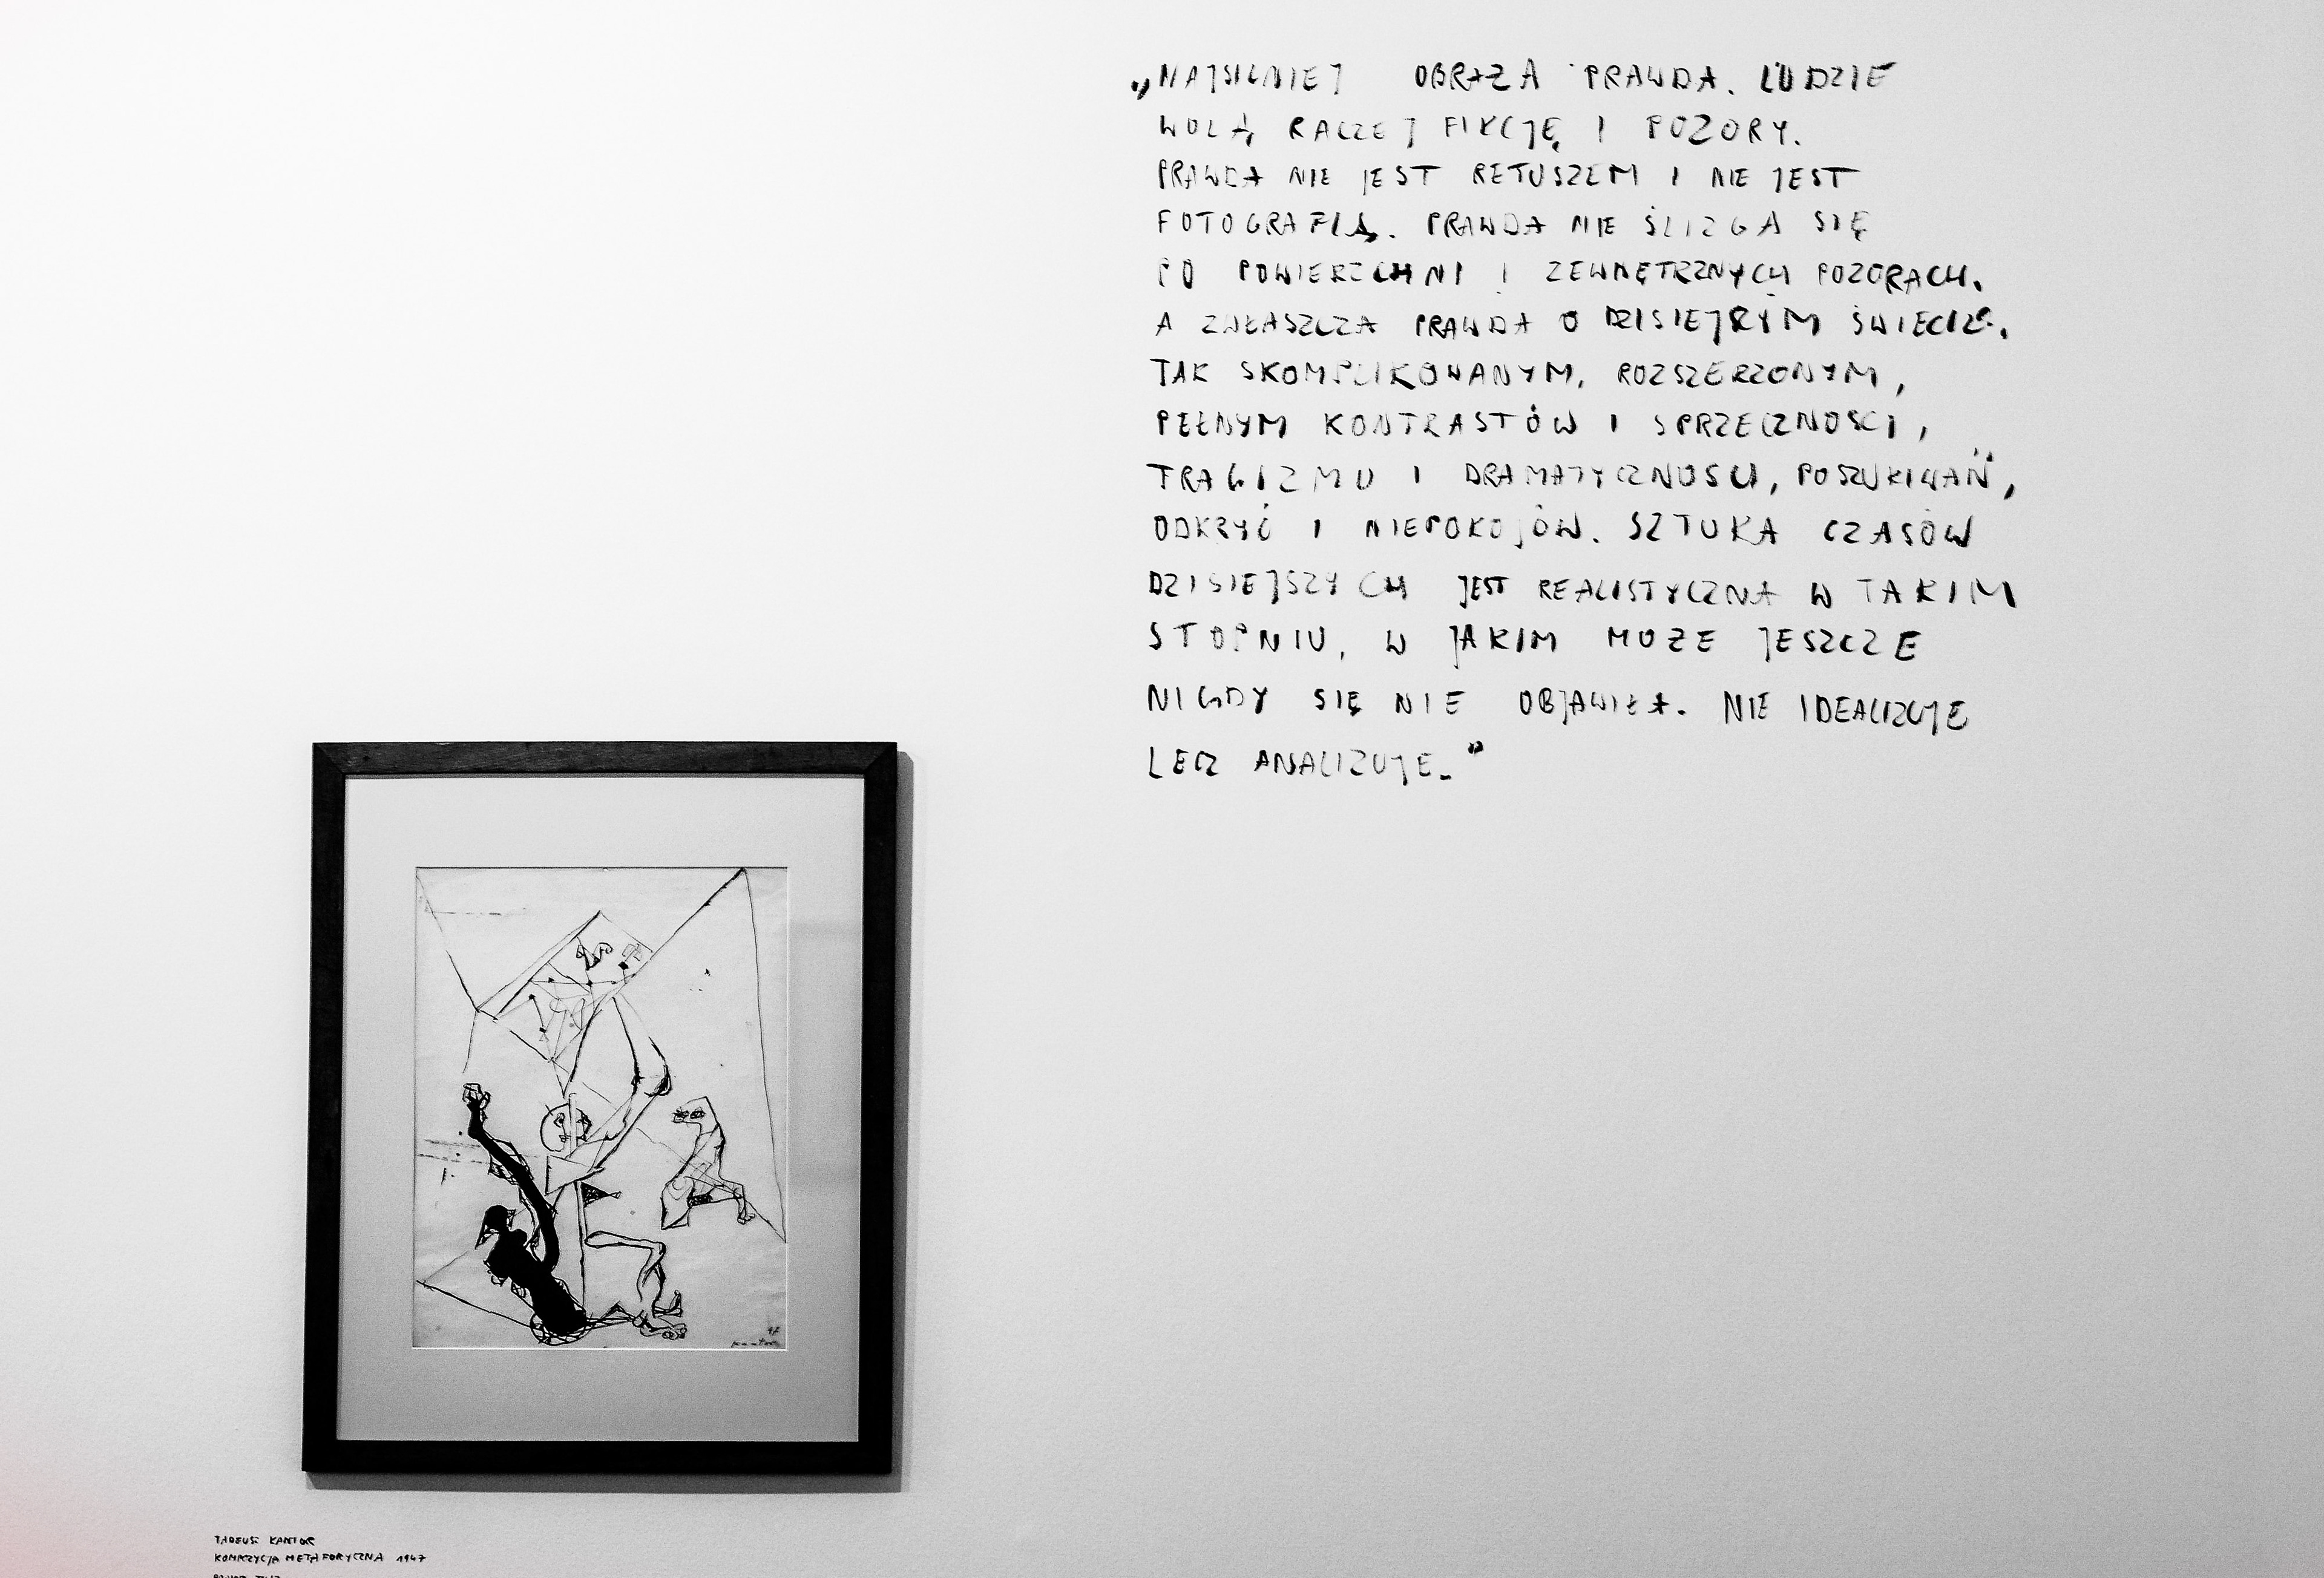 „NAJSILNIEJ OBRAZA PRAWDA. LUDZIE
WOLĄ RACZEJ FIKCJĘ I POZORY.
PRAWDA NIE JEST RETUSZEM I NIE JEST
FOTOGRAFIĄ. PRAWDA NIE ŚLIZGA SIĘ
PO POWIERZCHNI I ZEWNĘTRZNYCH POZORACH.
A ZWŁASZCZA PRAWDA O DZISIEJSZYM ŚWIECIE.
TAK SKOMPLIKOWANYM, ROZSZERZONYM,
PEŁNYM KONTRASTÓW I SPRZECZNOŚCI,
TRAGIZMU I DRAMATYCZNOŚCI, POSZUKIWAŃ,
ODKRYĆ I NIEPOKOJÓW. SZTUKA CZASÓW
DZISIEJSZYCH JEST REALISTYCZNA W TAKIM
STOPNIU, W JAKIM MOŻE JESZCZE
NIGDY SIĘ NIE OBJAWIŁA. NIE IDEALIZUJE
LECZ ANALIZUJE."
47
kantor
TADEUSZ KANTOR
KOMPOZYCJA METAFORYCZNA 1947